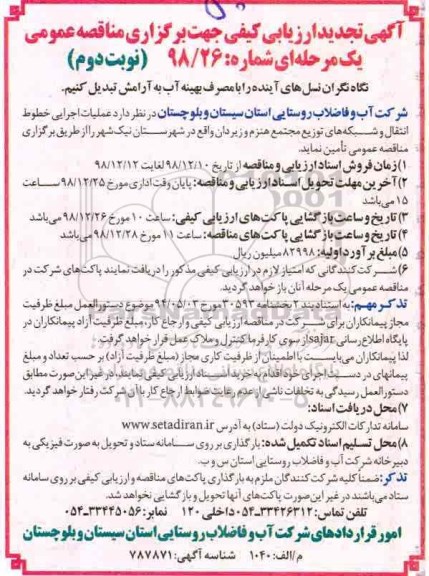 آگهی تجدید ارزیابی کیفی جهت برگزاری مناقصه عمومی
یک مرحله‌ای شماره: ۹۸/۲۶ (نوبت دوم)
نگاه نگران نسل‌های آینده را با مصرف بهینه آب به آرامش تبدیل کنیم.
شرکت آب و فاضلاب روستایی استان سیستان و بلوچستان در نظر دارد عملیات اجرایی خطوط
انتقال و شبکه‌های توزیع مجتمع هنزم و زیردان واقع در شهرستان نیک‌شهر را از طریق برگزاری
مناقصه عمومی تأمین نماید.
۱) زمان فروش اسناد ارزیابی و مناقصه از تاریخ ۹۸/۱۲/۱۰ لغایت ۹۸/۱۲/۱۲
۲) آخرین مهلت تحویل اسناد ارزیابی و مناقصه: پایان وقت اداری مورخ ۹۸/۱۲/۲۵ ساعت
۱۵ می‌باشد
۳) تاریخ و ساعت بازگشایی پاکت‌های ارزیابی کیفی: ساعت ۱۰ مورخ ۹۸/۱۲/۲۶ می‌باشد
۴) تاریخ و ساعت بازگشایی پاکت‌های مناقصه: ساعت ۱۱ مورخ ۹۸/۱۲/۲۸ می‌باشد
۵) مبلغ برآورد اولیه: ۸۲۹۹۸ میلیون ریال
۶) شرکت کنندگانی که امتیاز لازم در ارزیابی کیفی مذکور را دریافت نمایند پاکت‌های شرکت در
مناقصه عمومی یک مرحله آنان باز خواهد گردید.
تذکر مهم: به استناد بند ۲ بخشنامه ۳۰۵۹۳ مورخ ۹۴/۰۵/۰۳ موضوع دستورالعمل مبلغ ظرفیت
مجاز پیمانکاران برای شرکت در مناقصه ارزیابی کیفی و ارجاع کار، مبلغ ظرفیت آزاد پیمانکاران در
پایگاه اطلاع رسانی sajar از سوی کارفرما کنترل و ملاک عمل قرار خواهد گرفت.
لذا پیمانکاران می‌بایست با اطمینان از ظرفیت کاری مجاز (مبلغ ظرفیت آزاد) بر حسب تعداد و مبلغ
پیمانهای در دست اجرای خود اقدام به خرید اسناد ارزیابی کیفی نمایند، در غیر این صورت مطابق
دستورالعمل رسیدگی به تخلفات ناشی از عدم رعایت ضوابط ارجاع کار با آن شرکت رفتار خواهد گردید.
۷) محل دریافت اسناد:
سامانه تدارکات الکترونیک دولت (ستاد) به آدرس www.setadiran.ir
۸) محل تسلیم اسناد تکمیل شده: بارگذاری بر روی سامانه ستاد و تحویل به صورت فیزیکی به
دبیرخانه شرکت آب و فاضلاب روستایی استان س و ب.
تذکر: ضمناً کلیه شرکت کنندگان ملزم به بارگذاری پاکت‌های مناقصه و ارزیابی کیفی بر روی سامانه
ستاد می‌باشند در غیر این صورت پاکت‌های آنها تحویل و بازگشایی نخواهد شد.
تلفن تماس: ۳۳۴۲۶۳۱۲-۰۵۴ داخلی ۱۲۰ نمابر: ۳۳۴۴۵۰۵۶-۰۵۴
امور قراردادهای شرکت آب و فاضلاب روستایی استان سیستان و بلوچستان
م/الف: ۱۰۴۰ شناسه آگهی: ۷۸۷۸۷۱